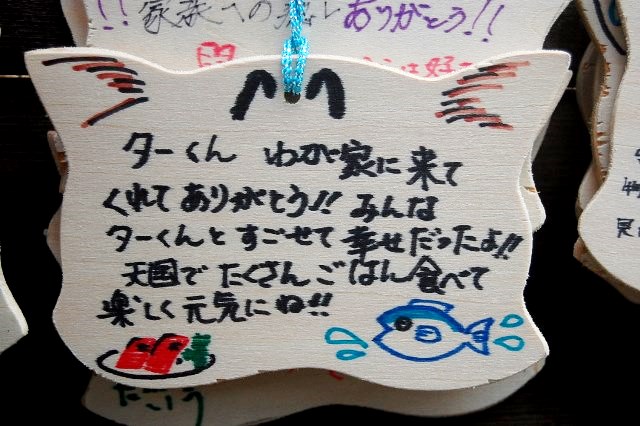 !!家族への癒し ありがとう!!
ターくん わが家に来て
くれてありがとう!! みんな
ターくんとすごせて幸せだったよ!!
天国でたくさんごはん食べて
楽しく元気にね!!